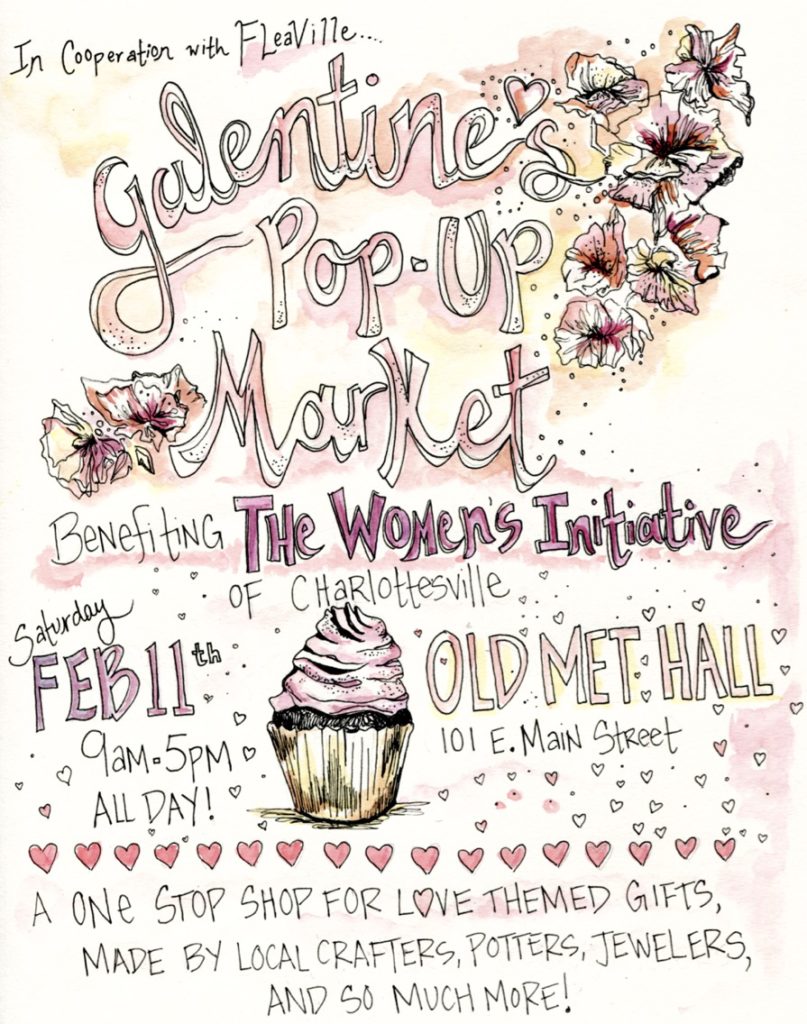 In Cooperation with FLeaVille....
Galentine's
Pop-Up
Market
Benefiting The Women's Initiative
of Charlottesville
Saturday
FEB 11th
9am-5pm
ALL DAY!
OLD MET HALL
101 E. Main Street
A One STOP SHOP FOR LOVE THEMED GIFTS,
MADE BY LOCAL CRAFTERS, POTTERS, JEWELERS,
AND SO MUCH MORE!